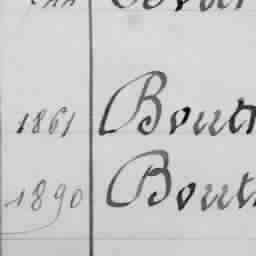 1861 Bout
1890 Bout